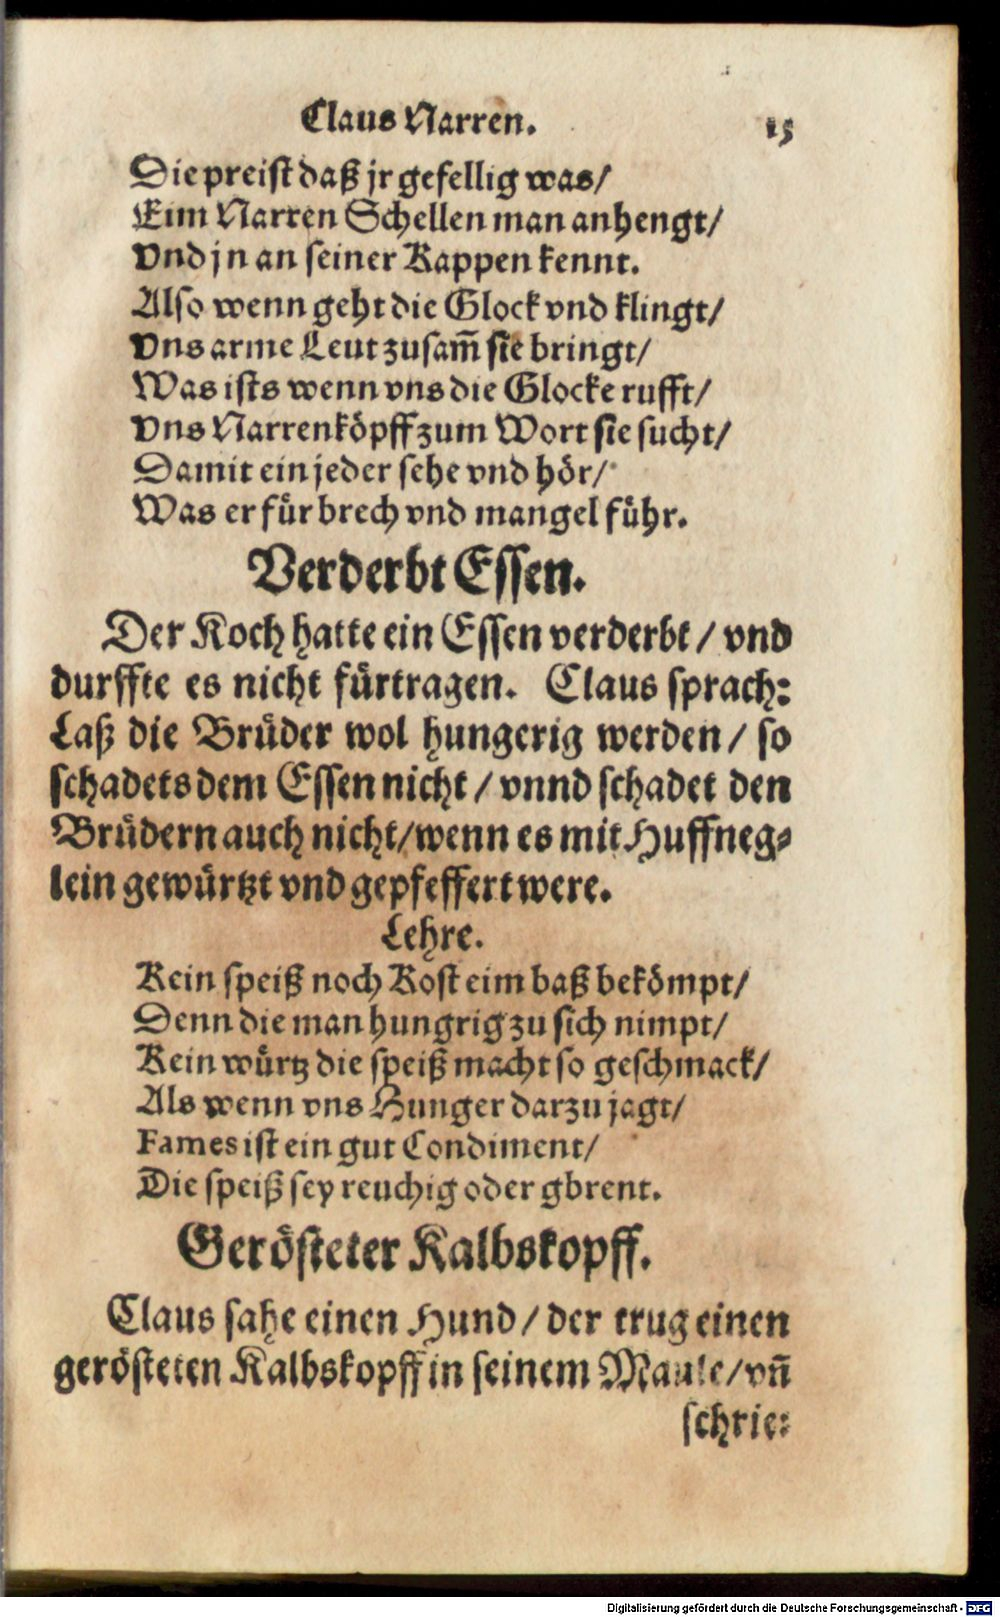 Claus Narren. 15
Die preist daß jr gefellig was/
Eim Narren Schellen man anhengt/
Vnd jn an seiner Kappen kennt.
Also wenn geht die Glock vnd klingt/
Vns arme Leut zusam̃ sie bringt/
Was ists wenn vns die Glocke rufft/
Vns Narrenköpff zum Wort sie sucht/
Damit ein jeder sehe vnd hör/
Was er für brech vnd mangel führ.
Verderbt Essen.
Der Koch hatte ein Essen verderbt / vnd
durffte es nicht fürtragen. Claus sprach:
Laß die Brüder wol hungerig werden / so
schadets dem Essen nicht / vnnd schadet den
Brüdern auch nicht/wenn es mit Huffneg⸗
lein gewürtzt vnd gepfeffert were.
Lehre.
Kein speiß noch Kost eim baß bekömpt/
Denn die man hungrig zu sich nimpt/
Kein würtz die speiß macht so geschmack/
Als wenn vns Hunger darzu jagt/
Fames ist ein gut Condiment/
Die speiß sey reuchig oder gbrent.
Gerösteter Kalbskopff.
Claus sahe einen Hund / der trug einen
gerösteten Kalbskopff in seinem Maule/vñ
schrie:
Digitalisierung gefördert durch die Deutsche Forschungsgemeinschaft - DFG